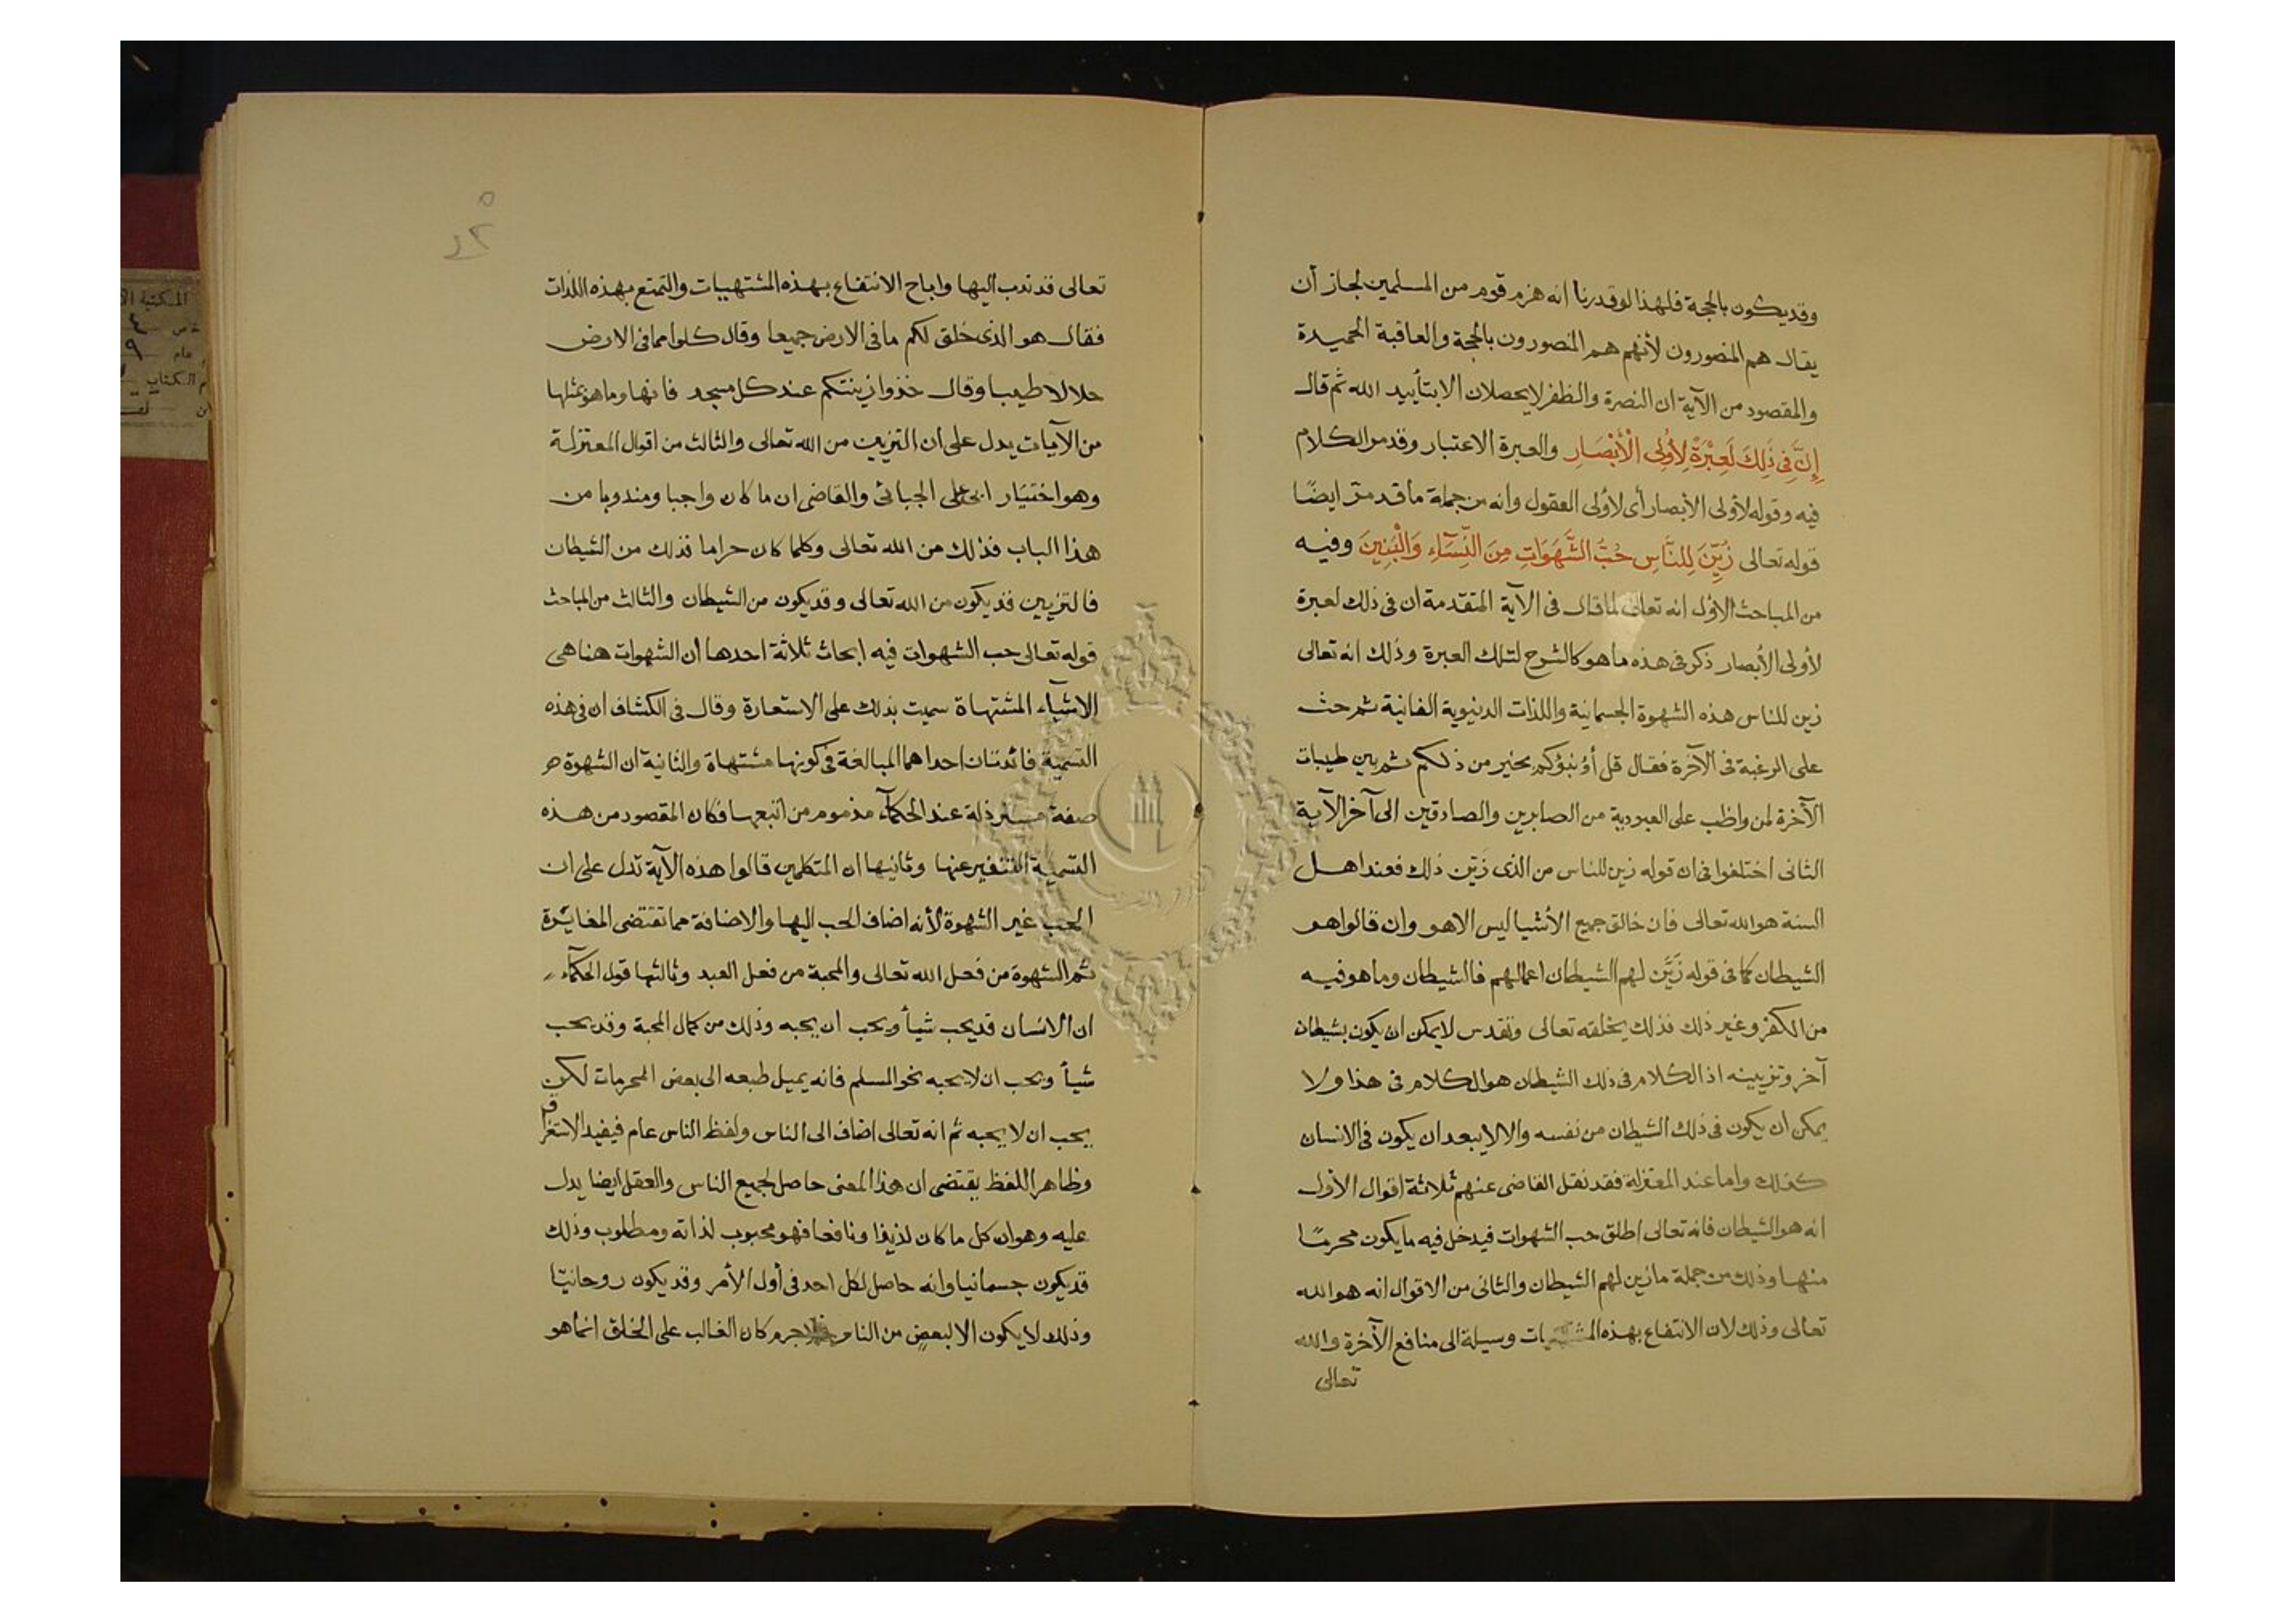 وقد يكون بالحجة فلهذا لو قدرنا انه هزم قوم من المسلمين لجاز أن
يقال هم المنصورون لأنهم هم المنصورون بالحجة والعاقبة الحميدة
والمقصود من الآية ان النصرة والظفر لا يحصلان الا بتأييد الله ثم قال
إِنَّ فِي ذَلِكَ لَعِبْرَةً لِأُولِي الْأَبْصَارِ والعبرة الاعتبار وقد مر الكلام
فيه وقوله لأولى الأبصار أى لأولى العقول وانه من جملة ما قد مرّ ايضًا
قوله تعالى زُيِّنَ لِلنَّاسِ حُبُّ الشَّهَوَاتِ مِنَ النِّسَآءِ وَالْبَنِينَ وفيه
من المباحث الأول انه تعالى لما قال فى الآية المتقدمة ان فى ذلك لعبرة
لأولى الأبصار ذكر فى هذه ما هو كالشرح لتلك العبرة وذلك انه تعالى
زين للناس هذه الشهوة الجسمانية واللذات الدنيوية الفانية ثم حث
على الرغبة فى الآخرة فقال قل أؤنبؤكم بخير من ذلكم ثم بين طيبات
الآخرة لمن واظب على العبودية من الصابرين والصادقين الى آخر الآية
الثانى اختلفوا فى ان قوله زين للناس من الذى زَيّن ذلك فعند اهل
السنة هو الله تعالى فان خالق جميع الأشيا ليس الا هو وان قالوا هو
الشيطان كما فى قوله زَيَّن لهم الشيطان اعمالهم فالشيطان وما هو فيه
من الكفر وغير ذلك فذلك يخلقه تعالى وتقدس لا يمكن ان يكون بشيطان
آخر وتزيينه اذ الكلام فى ذلك الشيطان هو الكلام فى هذا ولا
يمكن ان يكون فى ذلك الشيطان من نفسه والا لا يبعد ان يكون فى الانسان
كذلك واما عند المعتزلة فقد نقل القاضى عنهم ثلاثة اقوال الأول
انه هو الشيطان فانه تعالى اطلق حب الشهوات فيدخل فيه ما يكون محرمًا
منها وذلك من جملة ما زين لهم الشيطان والثانى من الاقوال انه هو الله
تعالى وذلك لان الانتفاع بهذه المشتهيات وسيلة الى منافع الآخرة والله
تعالى
تعالى قد ندب اليها واباح الانتفاع بهذه المشتهيات والتمتع بهذه اللذات
فقال هو الذى خلق لكم ما فى الارض جميعا وقال كلوا مما فى الارض
حلالا طيبا وقال خذوا زينتكم عند كل مسجد فانها وما هو بمثلها
من الآيات يدل على أن التزيين من الله تعالى والثالث من اقوال المعتزلة
وهو اختيار ابى على الجبائى والقاضى ان ما كان واجبا ومندوبا من
هذا الباب فذلك من الله تعالى وكلما كان حراما فذلك من الشيطان
فالتزيين قد يكون من الله تعالى وقد يكون من الشيطان والثالث من المباحث
قوله تعالى حب الشهوات فيه ابحاث ثلاثة احدها أن الشهوات هنا هى
الاشيآء المشتهاة سميت بذلك على الاستعارة وقال فى الكشاف ان فى هذه
التسمية فائدتان احداهما المبالغة فى كونها مشتهاة والثانية ان الشهوة
صفة مسترذلة عند الحكمآء مذموم من اتبعها فكان المقصود من هذه
التسمية التنفير عنها وثانيها ان المتكلمين قالوا هذه الآية تدل على ان
الحب غير الشهوة لأنه اضاف الحب اليها والاضافة مما تقتضى المغايرة
ثم الشهوة من فعل الله تعالى والمحبة من فعل العبد وثالثها قول الحكمآء
ان الانسان قد يحب شيأ ويحب ان يحبه وذلك من كمال المحبة وقد يحب
شيأ ويحب ان لا يحبه نحو المسلم فانه يميل طبعه الى بعض المحرمات لكن
يحب ان لا يحبه ثم انه تعالى اضاف الى الناس ولفظ الناس عام فيفيد الاستغراق
وظاهر اللفظ يقتضى ان هذا المعنى حاصل لجميع الناس والعقل ايضا يدل
عليه وهو ان كل ما كان لذيذا ونافعا فهو محبوب لذاته ومطلوب وذلك
قد يكون جسمانيا وانه حاصل لكل احد فى أول الأمر وقد يكون روحانيّا
وذلك لا يكون الا لبعضٍ من الناس فلا جرم كان الغالب على الخلق انما هو